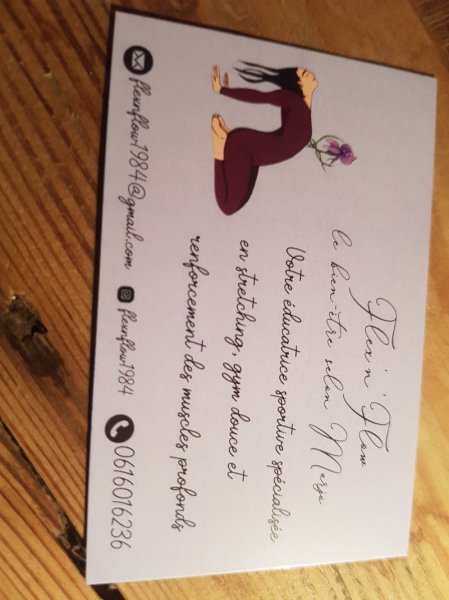 Flex'n'Flow
le bien-être selon Marje
Votre éducatrice sportive spécialisée
en stretching, gym douce et
renforcement des muscles profonds
flexnflow1984@gmail.com
flexnflow1984
0616016236